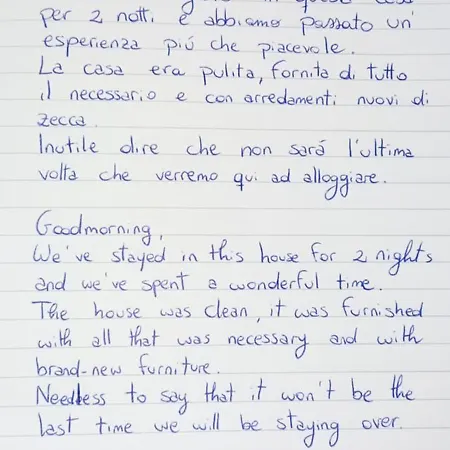 in questa casa
per 2 notti e abbiamo passato un'
esperienza piú che piacevole.
La casa era pulita, fornita di tutto
il necessario e con arredamenti nuovi di
zecca.
Inutile dire che non sará l'ultima
volta che verremo qui ad alloggiare.
Goodmorning,
We've stayed in this house for 2 nights
and we've spent a wonderful time.
The house was clean, it was furnished
with all that was necessary and with
brand-new furniture.
Needless to say that it won't be the
last time we will be staying over.